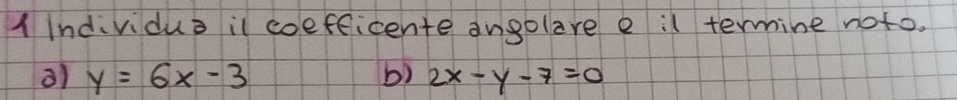 1 Individua il coefficente angolare e il termine noto.
a) y = 6x - 3 b) 2x - y - 7 = 0